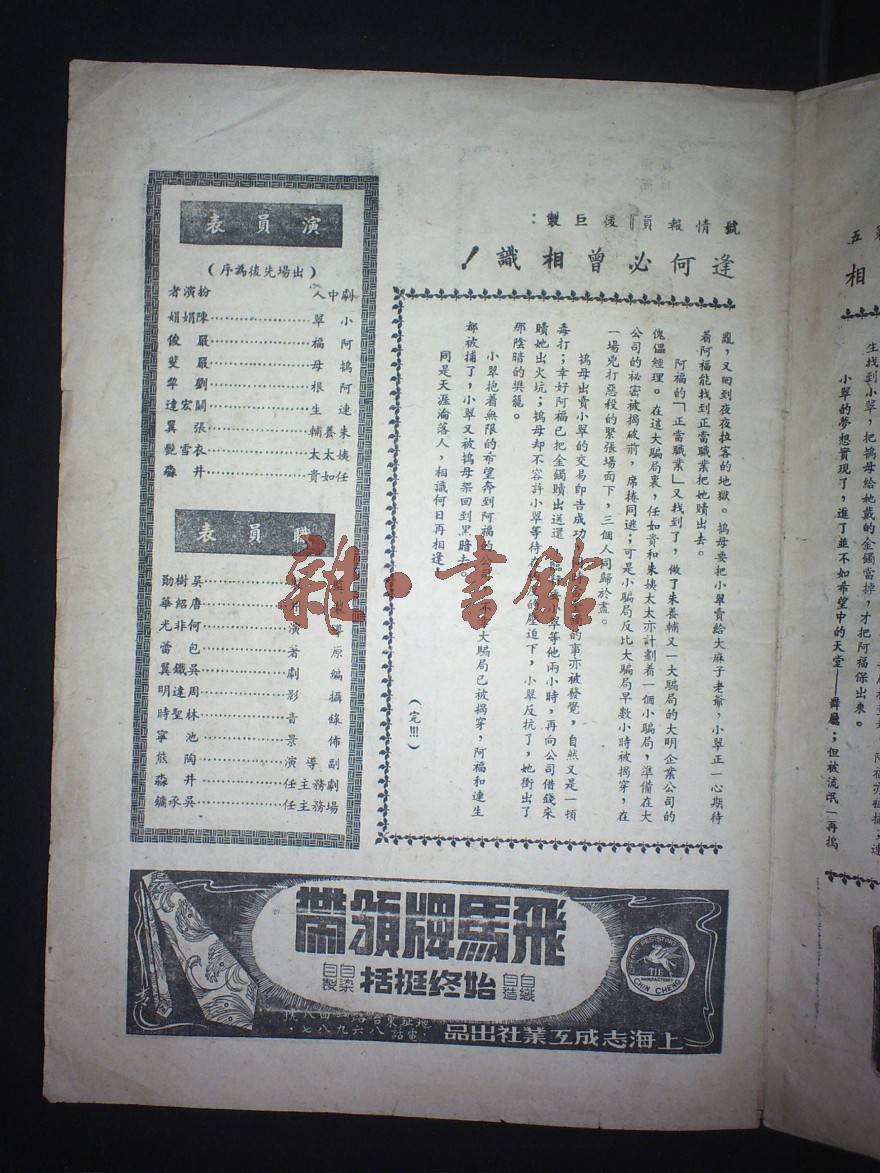 號情報員」後巨製：
逢何必曾相識！
亂，又回到夜夜拉客的地獄。鴇母要把小翠賣給大麻子老爺，小翠正一心期待
着阿福能找到正當職業把她贖出去。
阿福的「正當職業」又找到了，做了朱養輔又一大騙局的大明企業公司的
傀儡經理。在這大騙局裏，任如貴和朱姨太太亦計劃着一個小騙局，準備在大
公司的祕密被揭破前，席捲同逃；可是小騙局反比大騙局早數小時被揭穿，在
一場兇打惡殺的緊張場面下，三個人同歸於盡。
鴇母出賣小翠的交易即告成功，的事亦被發覺，自然又是一頓
毒打；幸好阿福已把金鐲贖出送還，小翠等他兩小時，再向公司借錢來
贖她出火坑；鴇母却不容許小翠等待在的壓迫下，小翠反抗了，她衝出了
那陰暗的獎籠。
小翠抱着無限的希望奔到阿福的公司，大騙局已被揭穿，阿福和連生
都被捕了，小翠又被鴇母架回到黑暗去
同是天涯淪落人，相識何日再相逢！
（完!!!）
演員表
（出場先後為序）
劇中人 扮演者
小翠……陳娟娟
阿福……嚴俊
鴇母……嚴斐
阿根……劉犂
連生……關宏達
朱養輔……張翼
姨太太……衣雪艷
任如貴……井淼
職員表
吳樹勛
唐紹華
導演……何非光
原著……包蕾
編劇……吳鐵翼
攝影……周達明
錄音……林聖時
佈景……池寧
副導演……陶熊
劇務主任……井淼
場務主任……吳承鏞
飛馬牌領帶
自織自造 始終挺括 自染自製
TIE
CHIN CHENG
上海志成工業社出品
電話八六九八七
五
相
生找到小翠，把鴇母給她戴的金鐲當掉，才把阿福保出來。
小翠的夢想實現了，進了並不如希望中的天堂——舞廳；但被流氓一再搗
雜·書館